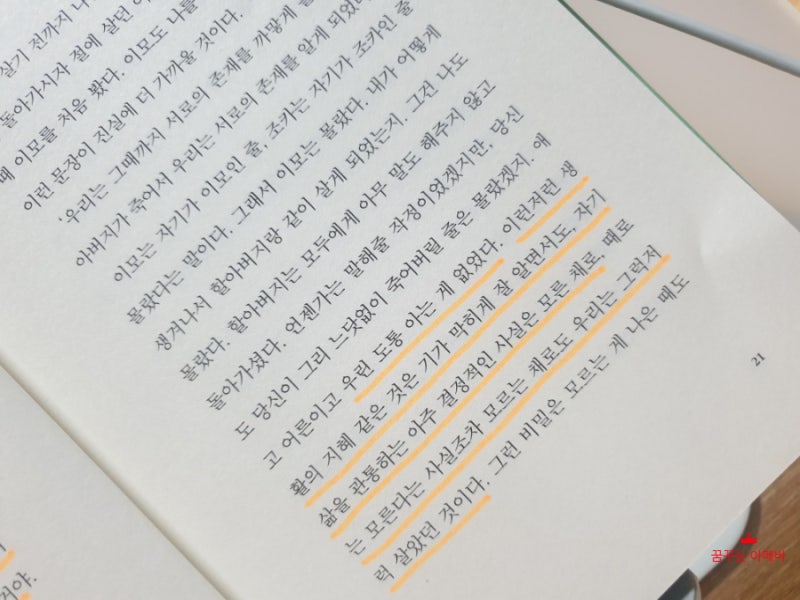 살기 전까지
돌아가시자 절에 살던
때 이모를 처음 봤다. 이모도 나를
이런 문장이 진실에 더 가까울 것이다.
'우리는 그때까지 서로의 존재를 까맣게
아버지가 죽어서 우리는 서로의 존재를 알게 되었다
이모는 자기가 이모인 줄, 조카는 자기가 조카인 줄
몰랐다는 말이다. 그래서 이모는 몰랐다. 내가 어떻게
생겨나서 할아버지랑 같이 살게 되었는지. 그건 나도
몰랐다. 할아버지는 모두에게 아무 말도 해주지 않고
돌아가셨다. 언젠가는 말해줄 작정이었겠지만, 당신
도 당신이 그리 느닷없이 죽어버릴 줄은 몰랐겠지. 애
고 어른이고 우린 도통 아는 게 없었다. 이런저런 생
활의 지혜 같은 것은 기가 막히게 잘 알면서도, 자기
삶을 관통하는 아주 결정적인 사실은 모른 채로, 때로
는 모른다는 사실조차 모르는 채로도 우리는 그럭저
럭 살았던 것이다. 그런 비밀은 모르는 게 나은 때도
21
거야.
꿈꾸는 아메바